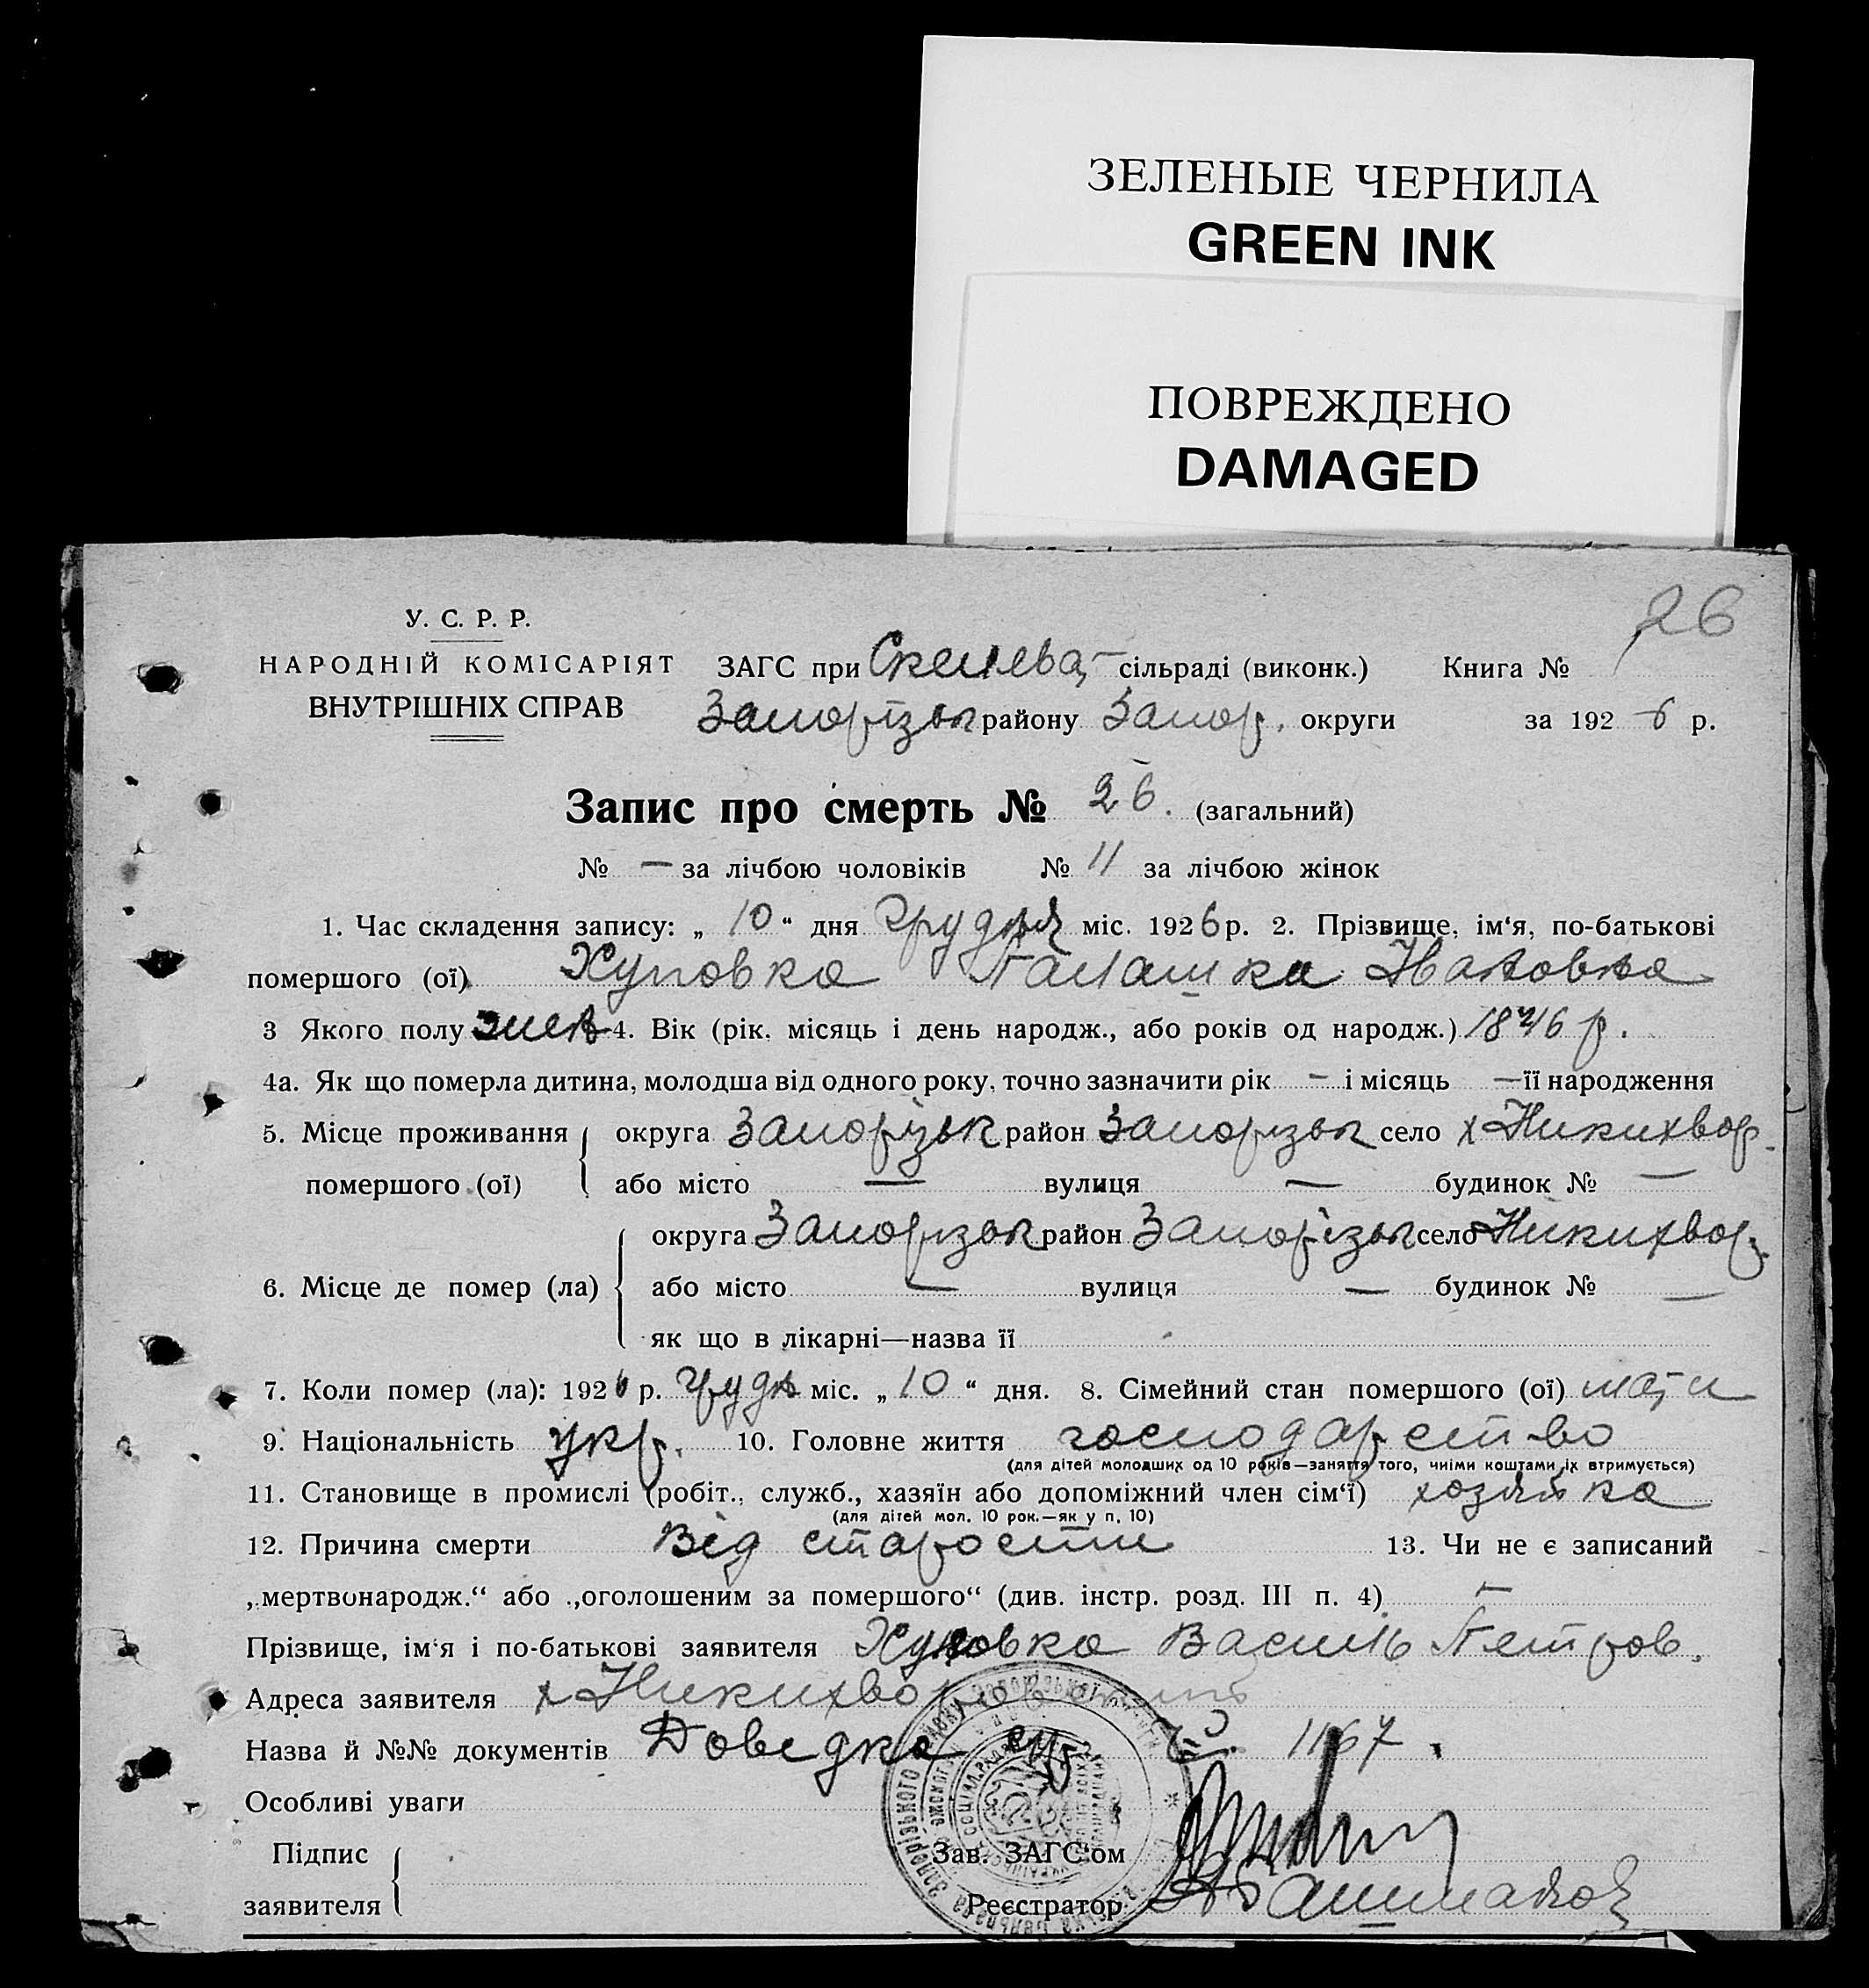 ЗЕЛЕНЫЕ ЧЕРНИЛА
GREEN INK
ПОВРЕЖДЕНО
DAMAGED
26
У. С. Р. Р.
НАРОДНІЙ КОМІСАРІЯТ ЗАГС при сільраді (виконк.) Книга №
ВНУТРІШНІХ СПРАВ Запорізьк району Запор. округи за 1926 р.
Запис про смерть № 26. (загальний)
№ — за лічбою чоловіків № 11 за лічбою жінок
1. Час складення запису: „ 10 “ дня Грудня міс. 1926 р. 2. Прізвище, ім‘я, по-батькові
помершого (ої) Хуповка Палашка Ивановна
3 Якого полу жен 4. Вік (рік, місяць і день народж., або років од народж.) 1846 р.
4а. Як що померла дитина, молодша від одного року, точно зазначити рік — і місяць — її народження
5. Місце проживання округа Запорізьк район Запорізьк село х Никихвор.
помершого (ої) або місто — вулиця — будинок № —
округа Запорізьк район Запорізьк село Никихвор.
6. Місце де помер (ла) або місто — вулиця — будинок № —
як що в лікарні—назва її
7. Коли помер (ла): 1926 р. грудн міс. „ 10 “ дня. 8. Сімейний стан помершого (ої) мати
9. Національність укр. 10. Головне життя господарство
(для дітей молодших од 10 років—заняття того, чиїми коштами їх втримується)
11. Становище в промислі (робіт., служб., хазяїн або допоміжний член сім‘ї) хозяйка
(для дітей мол. 10 рок.—як у п. 10)
12. Причина смерти Від старости 13. Чи не є записаний
„мертвонародж.“ або „оголошеним за помершого“ (див. інстр. розд. III п. 4) —
Прізвище, ім‘я і по-батькові заявителя Хуповка Василь Петров.
Адреса заявителя х Никихворов
Назва й №№ документів Довідка 1167.
Особливі уваги
Підпис Зав. ЗАГС‘ом
заявителя Реєстратор